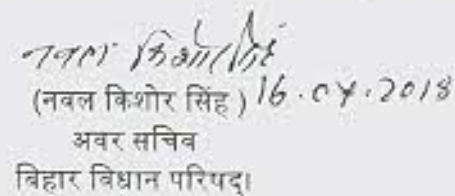 नवल किशोर सिंह
(नवल किशोर सिंह) 16.04.2018
अवर सचिव
बिहार विधान परिषद्।